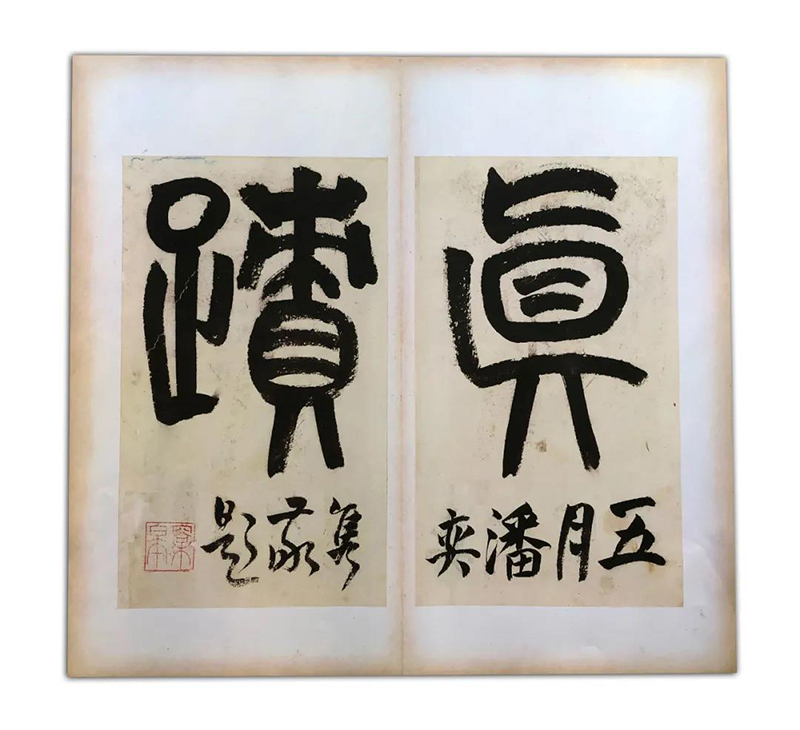 眞蹟
五月潘奕雋敬題